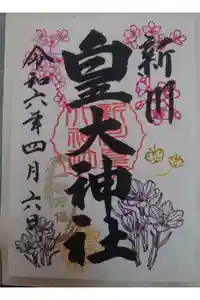 新川
皇大神社
令和六年四月六日